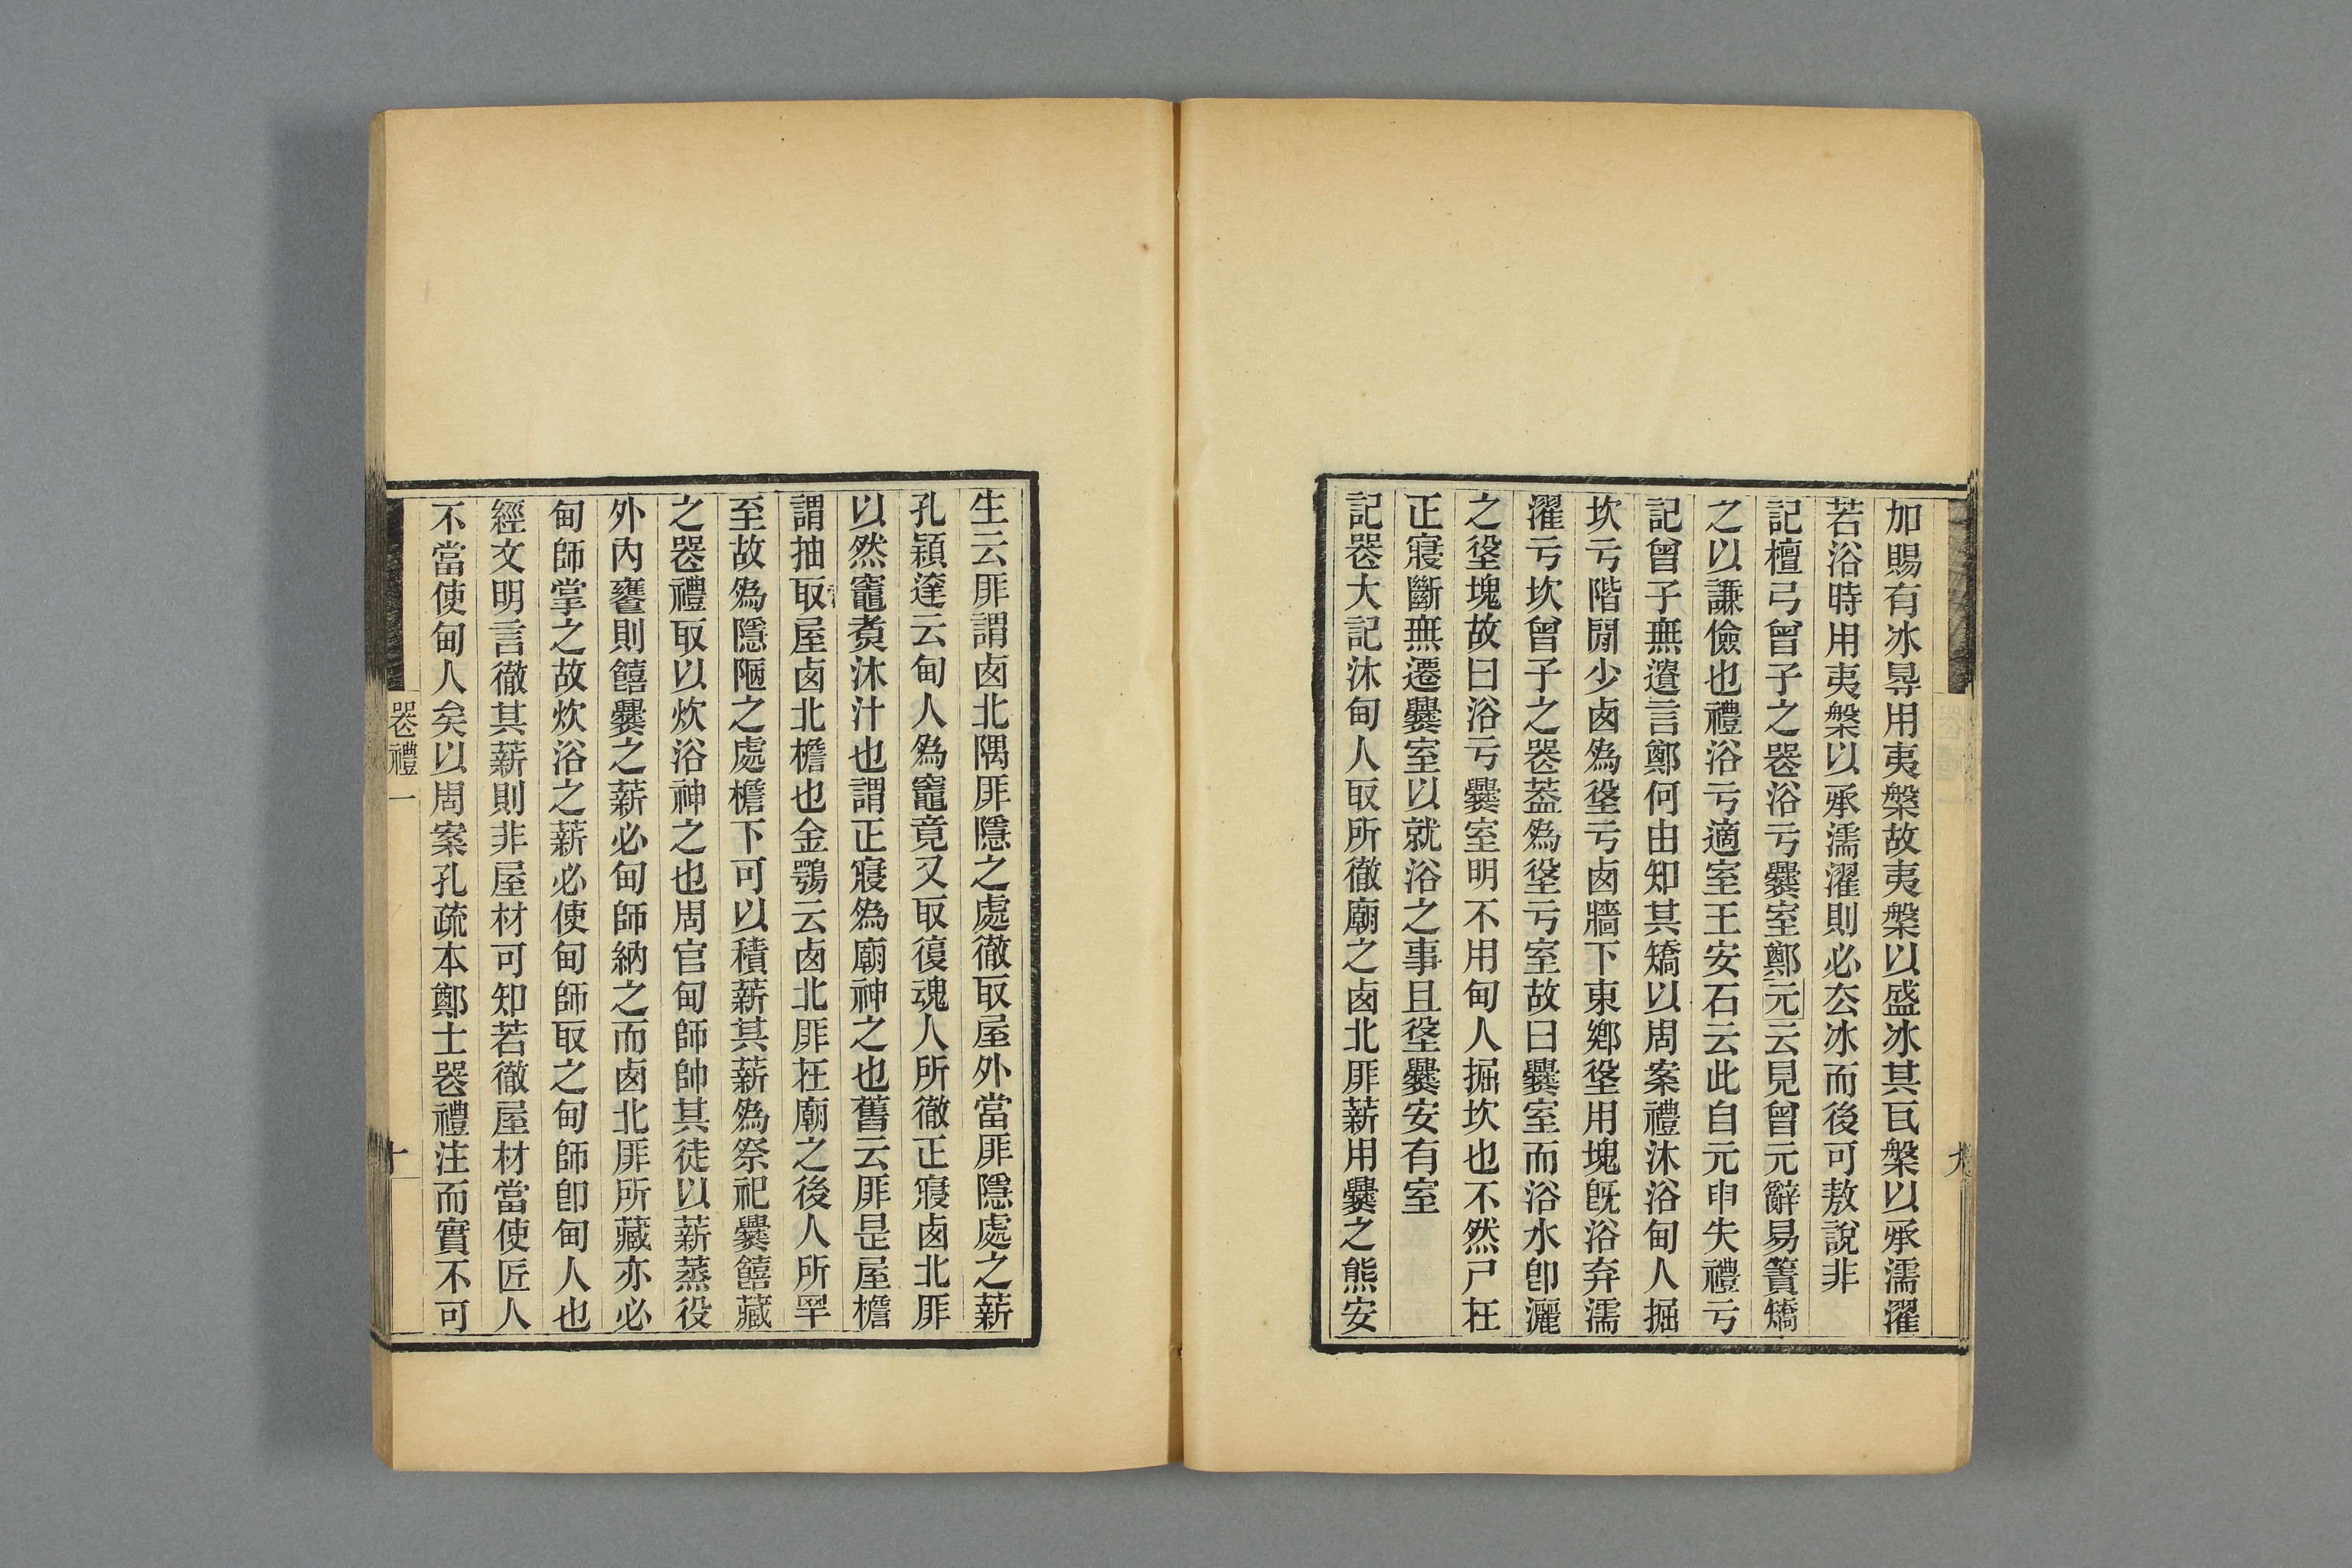 加賜有冰㝵用夷槃故夷槃以盛冰其瓦槃以承濡濯
若浴時用夷槃以承濡濯則必厺冰而後可敖說非
記檀弓曾子之喪浴亏爨室鄭元云見曾元辭易簀矯
之以謙儉也禮浴亏適室王安石云此自元申失禮亏
記曾子無遺言鄭何由知其矯以周案禮沐浴甸人掘
坎亏階閒少卥為垼亏卥牆下東鄉垼用塊旣浴弃濡
濯亏坎曾子之喪葢為垼亏室故曰爨室而浴水卽灑
之垼塊故曰浴亏爨室明不用甸人掘坎也不然尸在
正寢斷無遷爨室以就浴之事且垼爨安有室
記喪大記沐甸人取所徹廟之卥北厞薪用爨之熊安
生云厞謂卥北隅厞隱之處徹取屋外當厞隱處之薪
孔穎達云甸人為竈竟又取復魂人所徹正寢卥北厞
以然竈煑沐汁也謂正寢為廟神之也舊云厞是屋檐
謂抽取屋卥北檐也金鶚云卥北厞在廟之後人所罕
至故為隱陋之處檐下可以積薪其薪為祭祀爨饎藏
之喪禮取以炊浴神之也周官甸師帥其徒以薪蒸役
外內饔則饎爨之薪必甸師納之而卥北厞所藏亦必
甸師掌之故炊浴之薪必使甸師取之甸師卽甸人也
經文明言徹其薪則非屋材可知若徹屋材當使匠人
不當使甸人矣以周案孔疏本鄭士喪禮注而實不可
喪禮一
十